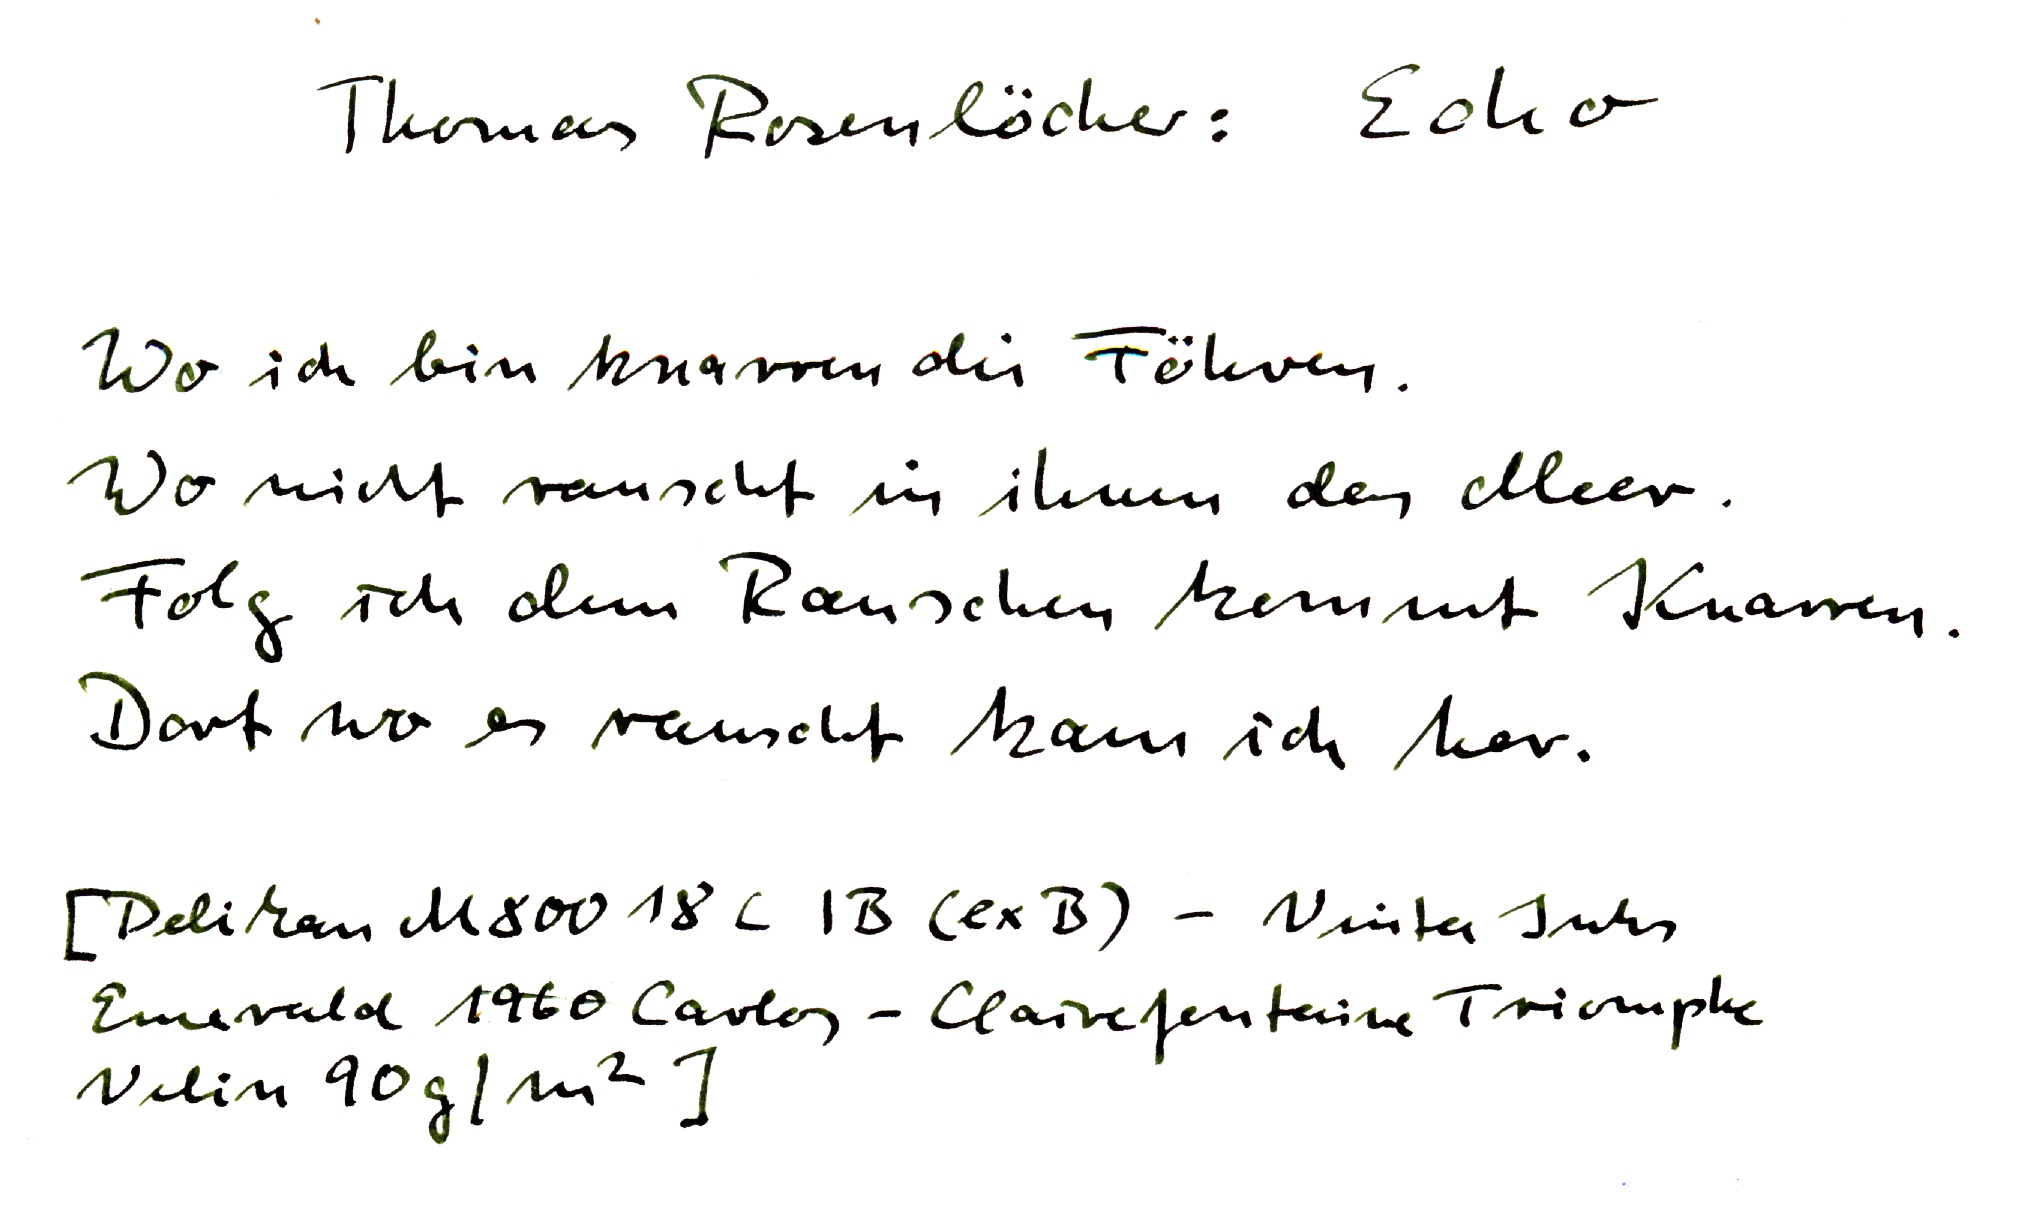 Thomas Rosenlöcher: Echo
Wo ich bin knarren die Föhren.
Wo nicht rauscht in ihnen das Meer.
Folg ich dem Rauschen kommt Knarren.
Dort wo es rauscht kam ich her.
[Pelikan M800 18C IB (ex B) – Vinta Inks
Emerald 1960 Carlos – Clairefontaine Triomphe
Velin 90g/m²]